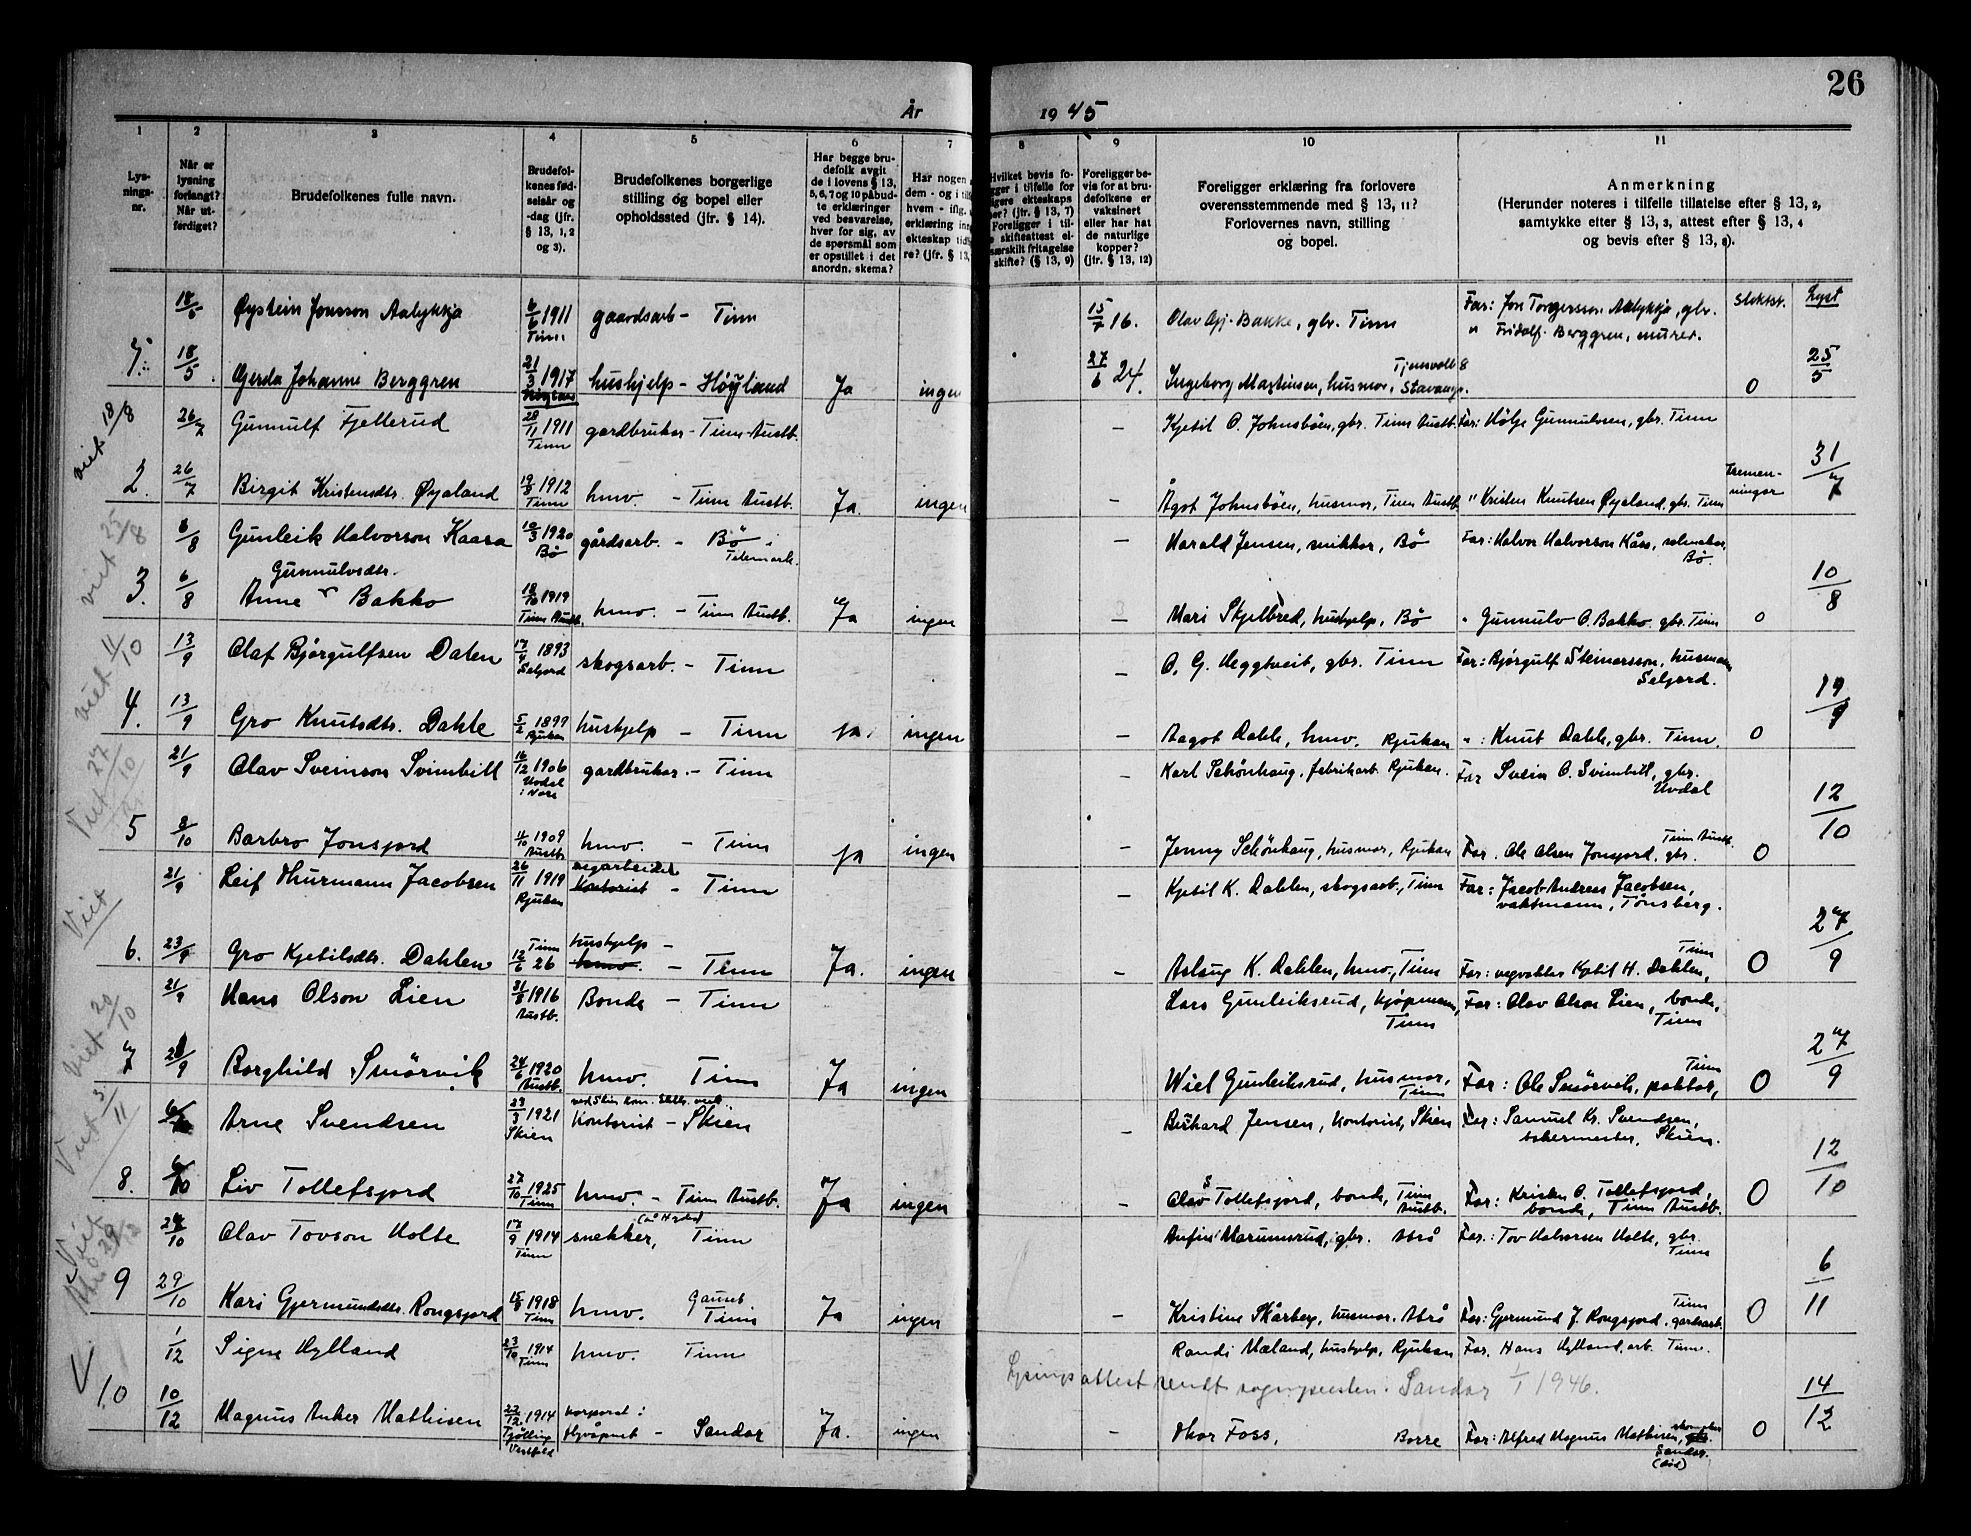 26
År 1945
1 2 3 4 5 6 7 8 9 10 11
Lysningsnr.
Når er lysning forlangt? Når utferdiget?
Brudefolkenes fulle navn.
Brudefolkenes fødselsår og -dag (jfr. § 13, 1, 2 og 3).
Brudefolkenes borgerlige stilling og bopel eller opholdssted (jfr. § 14).
Har begge brudefolk avgit de i lovens § 13, 5, 6, 7 og 10 påbudte erklæringer ved besvarelse, hver for sig, av de spørsmål som er opstillet i det anordn. skema?
Har nogen
dem - og i til
hvem - iflg.
erklæring inn
ekteskap tid
re? (jfr. § 13,
Hvilket bevis fo-
gger i tilfelle for
igere ekteskaps
ør? (jfr. § 13, 7)
Foreligger i til-
e skifteattest el-
særskilt fritagelse
skifte? (§ 13, 9)
Foreligger bevis for at brudefolkene er vaksinert eller har hat de naturlige kopper? (jfr. § 13, 12)
Foreligger erklæring fra forlovere overensstemmende med § 13, 11? Forlovernes navn, stilling og bopel.
Anmerkning
(Herunder noteres i tilfelle tillatelse efter § 13, 2, samtykke efter § 13, 3, attest efter § 13, 4 og bevis efter § 13, 8).
slektsk. Lyst
18/5 Øystein Jonsson Aalykkja 6/6 1911 Tinn gaardsarb - Tinn 15/7 16. Olav Bakke, gbr. Tinn Far: Jon Torgersson Aalykkja, gbr.
" Fridolf Berggren, murer.
18/5 Gjerda Johanne Berggren 21/3 1917 hushjelp - Høyland Ja ingen 27/6 24. Ingeborg Martinsen, husmor, Stavanger. 0 25/5
viet 18/8 26/7 Gunnulf Fjellerud 28/11 1911 Tinn gardbruker - Tinn Austb. - Kjetil O. Johnsbøen, gbr. Tinn Austb. Far: Hølje Gunnulvsen, gbr. Tinn
2. 26/7 Birgit Kristensdtr. Øyaland 19/8 1912 Tinn hmv. - Tinn Austb. Ja. ingen - Ågot Johnsbøen, husmor, Tinn Austb. " Kristen Knutsen Øyaland, gbr. Tinn Tremenninger 31/7
viet 25/8 6/8 Gunleik Halvorsson Kaasa 10/3 1920 Bø gårdsarb. - Bø i Telemark. - Harald Jensen, snikker, Bø Far: Halvor Halvorsson Kåsa, Bø.
3. 6/8 Anne Gunnulvsdtr. Bakko 18/10 1919 Tinn Austb. hmv. - Tinn Austb. Ja ingen Mari Skjelbred, hushjelp, Bø " Gunnulv O. Bakko. gbr. Tinn 0 10/8
viet 11/10 13/9 Olaf Bjørgulfsen Dalen 17/4 1893 Seljord skogsarb. - Tinn - O. G. Heggtveit, gbr. Tinn Far: Bjørgulf Steinarsson, husmann Seljord.
4. 13/9 Gro Knutsdtr. Dahle 5/2 1899 Rjukan hushjelp - Tinn ja. ingen - Aagot Dahle, hmv. Rjukan " : Knut Dahle, gbr. Tinn. 0 19/9
Viet 27/10 21/9 Olav Sveinson Svimbill 16/12 1906 Uvdal i Nore gardbruker. - Tinn - Karl Schønhaug, fabrikarb. Rjukan. Far Svein O. Svimbill, gbr. Uvdal
5 8/10 Barbro Jonsjord 4/10 1909 Austb. hmv. - Tinn ja ingen - Jenny Schønhaug, husmor, Rjukan Far. Ole Olsen Jonsjord, gbr. Tinn Austb. 0 12/10
Viet 21/9 Leif Thurmann Jacobsen 26/11 1919 Rjukan Kontorist - Tinn - Kjetil K. Dahlen, skogsarb., Tinn Far: Jacob Andreas Jacobsen, vaktmann, Tønsberg.
6. 23/9 Gro Kjetilsdtr. Dahlen 12/6 26 Tinn hushjelp - hmv. - Tinn Ja. ingen - Aslaug K. Dahlen, hmv., Tinn Far: vegvokter Kjetil H. Dahlen, Tinn 0 27/9
viet 20/10 21/9 Hans Olson Lien 31/8 1916 Austb. Bonde - Tinn Lars Gunleiksrud, kjøpmann, Tinn Far: Olav Olson Lien, bonde, Tinn
7 21/9 Borghild Smørvik 24/6 1920 Austb. hmv. Tinn Ja ingen Wiel Gunleiksrud, husmor, Tinn Far: Ole Smørvik, Tinn 0 27/9
Viet 3/11 6/10 Arne Svendsen 23/3 1921 Skien Kontorist - Skien - Birkard Jensen, kontorist, Skien Far: Samuel Kr. Svendsen, bakermester, Skien.
8. 6/10 Liv Tollefsjord 27/10 1925 Tinn hmv. - Tinn Austb. Ja ingen - Olav S Tollefsjord, bonde, Tinn Austb. Far: Kristen O. Tollefsjord, bonde, Tinn Austb. 0 12/10
Viet 29/12 29/10 Olav Tovson Holte 17/9 1914 Tinn snekker, Tinn Anfinn Marumsrud, gbr. Atrå Far: Tov Halvorsen Holte, gbr. Tinn
9 29/10 Kari Gjermundsdtr. Rongsjord 15/8 1918 Tinn hmv. Gauset Tinn Ja ingen - Kristine Skårberg, husmor. Atrå Far: Gjermund J. Rongsjord, gardsarb. Tinn 0 6/11
V 1/12 Signe Hylland 23/10 1914 Tinn hmv. Tinn Randi Mæland, hushjelp, Rjukan Far. Hans Hylland, arb. Tinn.
Lysingsattest sendt sognepresten i Sandar 1/1 1946.
10 10/12 Magnus Anker Mathisen 22/12 1914 Tjølling Vestfold korporal i flyvåpnet - Sandar Ja. ingen - Thor Foss, Borre Far: Alfred Magnus Mathisen, Sandar. (død) 0 14/12